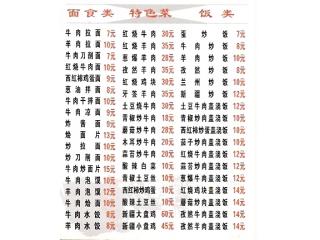 面食类 特色菜 饭类
牛肉拉面 7元 红烧牛肉 30元 蛋炒饭 7元
羊肉拉面 10元 红烧羊肉 35元 牛肉炒饭 8元
牛肉刀削面 7元 葱爆羊肉 28元 羊肉炒饭 8元
红烧牛肉面 10元 孜然羊肉 35元 孜然炒饭 8元
西红柿鸡蛋面 9元 红烧鸡块 30元 兰州炒饭 10元
葱油拌面 8元 牙签羊肉 35元 新疆炒饭 12元
牛肉干拌面 10元 土豆烧牛肉 30元 土豆牛肉盖浇饭 12元
牛肉凉面 9元 青椒炒牛肉 30元 青椒牛肉盖浇饭 12元
炸酱面 9元 蘑菇炒牛肉 28元 西红柿鸡蛋盖浇饭 10元
烩面片 13元 木耳炒牛肉 28元 茄子炒肉盖浇饭 12元
炒拉面 10元 蒜苔炒牛肉 28元 蒜苔炒肉盖浇饭 12元
炒刀削面 10元 酸辣白菜 10元 土豆丝盖浇饭 10元
牛肉炒面片 15元 酸辣土豆丝 10元 青椒炒蛋盖浇饭 10元
牛肉泡馍 10元 青椒土豆丝 10元 葱爆牛肉盖浇饭 12元
羊肉泡馍 12元 西红柿炒鸡蛋 10元 红烧鸡块盖浇饭 14元
牛肉烩面 10元 酸辣土豆丝 10元 蘑菇炒肉盖浇饭 12元
牛肉水饺 8元 新疆大盘鸡 60元 孜然牛肉盖浇饭 14元
羊肉水饺 8元 新疆小盘鸡 45元 孜然羊肉盖浇饭 14元